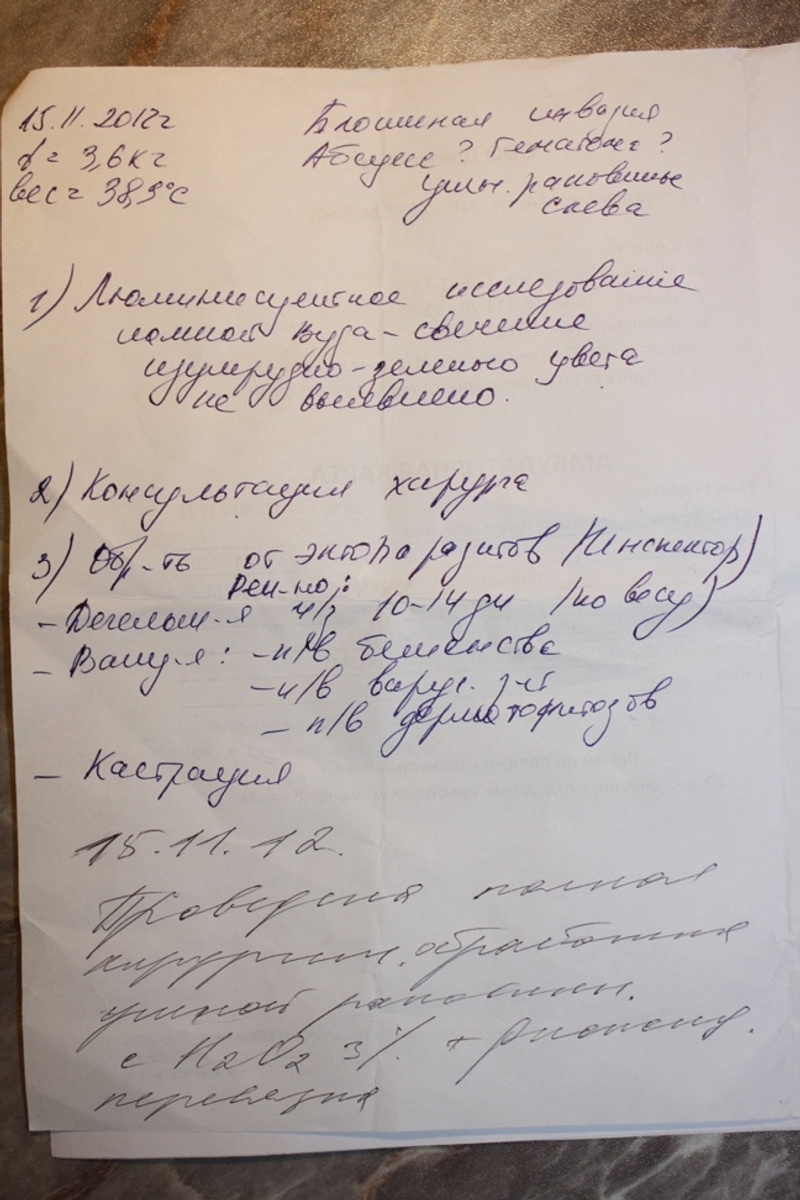 15.11.2012г
t = 3,6 кг
вес = 38,9°С
Блошиная инвазия
Абсцесс ? Гематома ?
ушн. раковины
слева
1) Люминисцентное исследование
лампой Вуда - свечение
изумрудно-зеленого цвета
не выявлено.
2) Консультация хирурга
3) Обр-ть от эктопаразитов (Инспектор)
Рек-но:
- Дегельм-я ч/з 10-14 дн (по весу)
- Вакц-я: - п/в бешенства
- п/в вирус.
- п/в дерматофитозов
- Кастрация
15.11.12.
Проведена полная
хирургич. обработка
ушной раковины.
с H2O2 3% +
перевязка